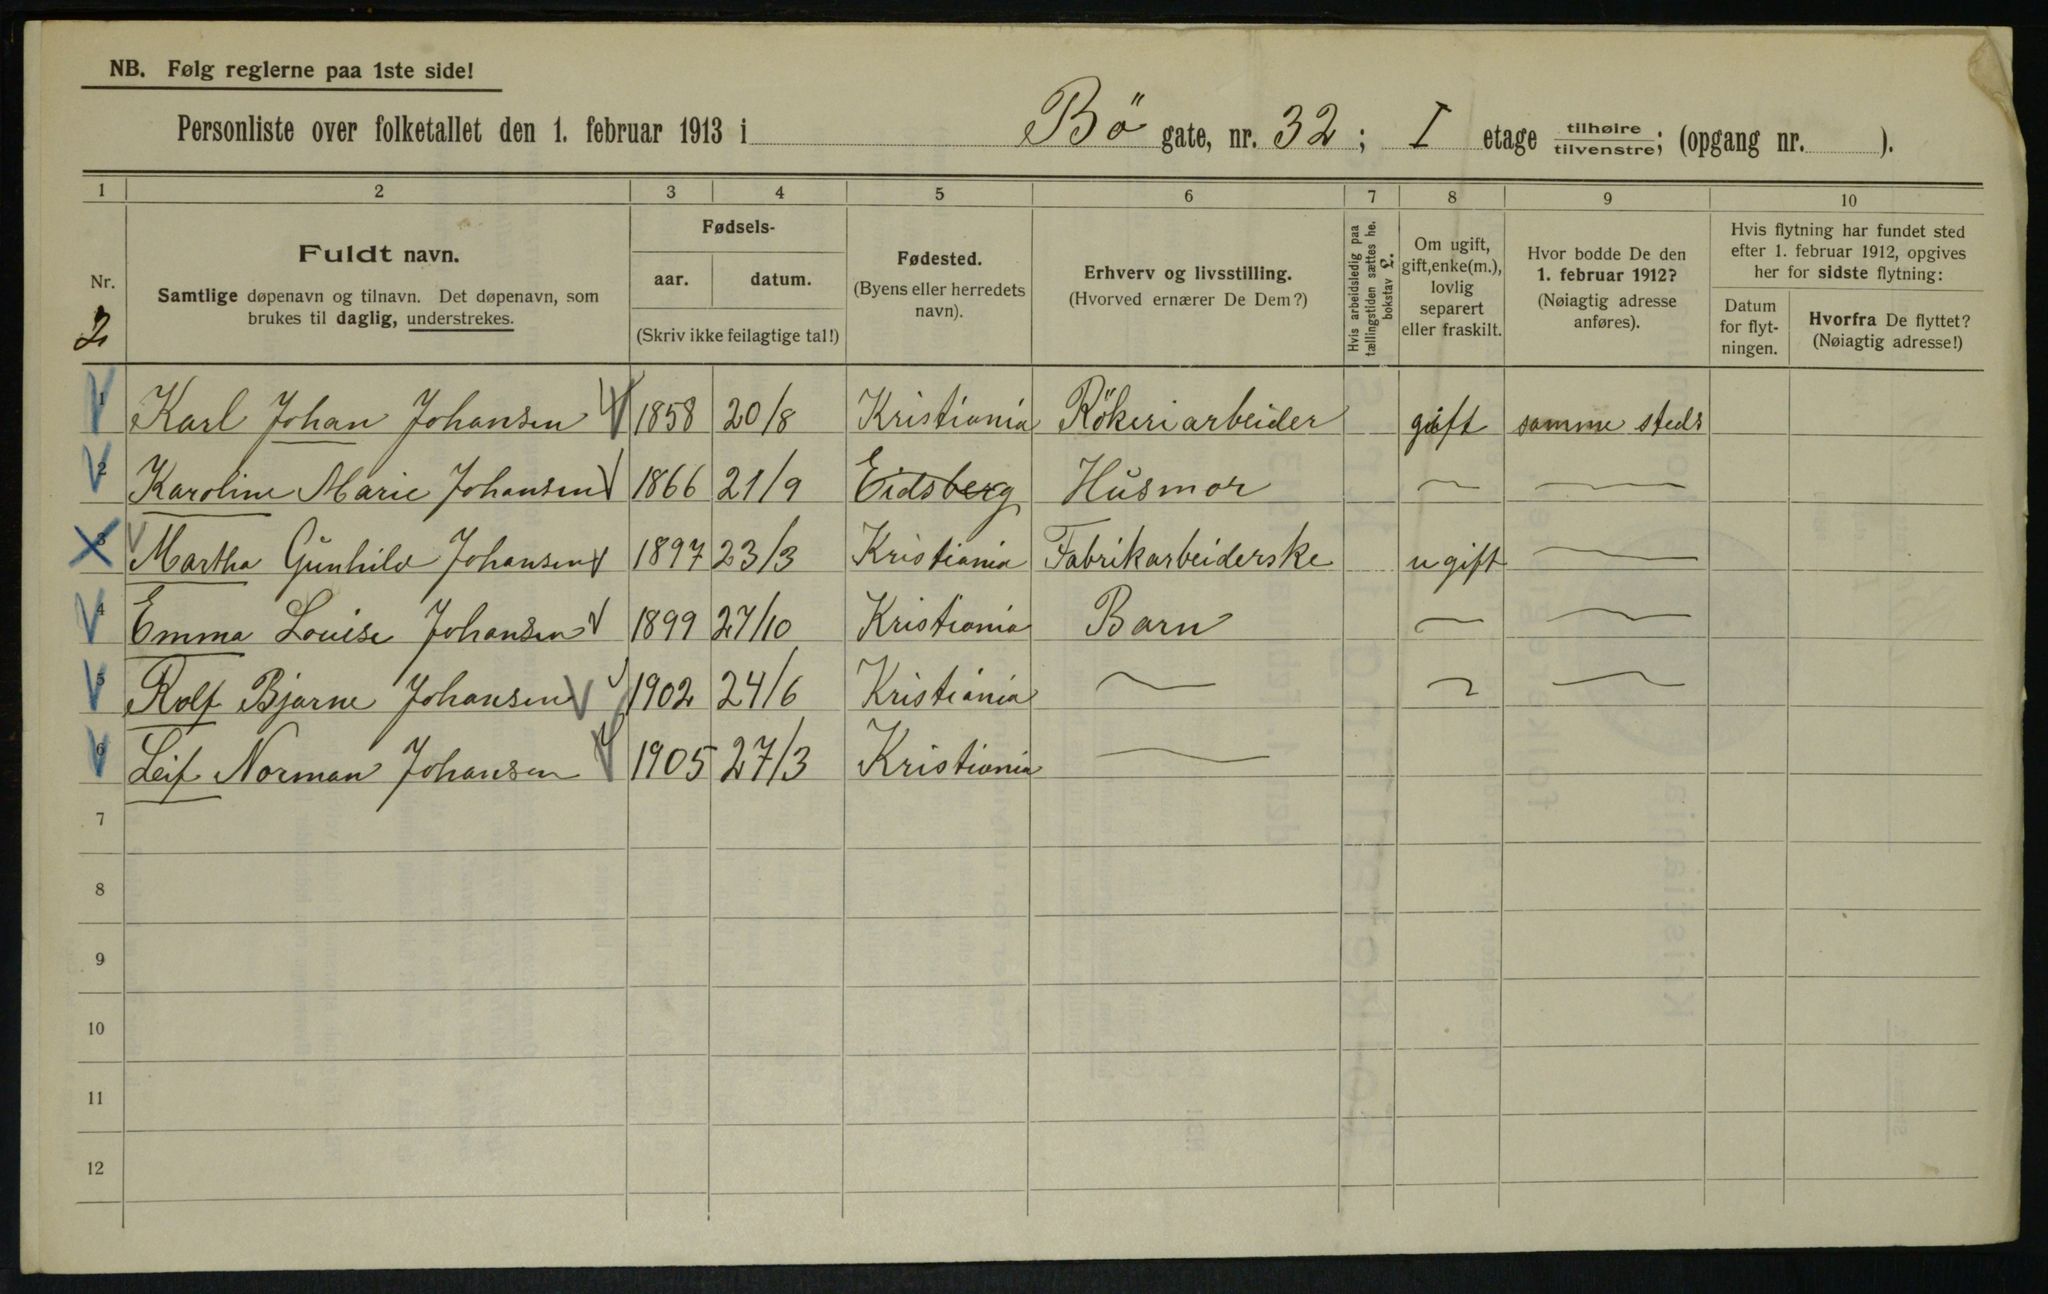 NB. Følg reglerne paa 1ste side!
Personliste over folketallet den 1. februar 1913 i Bö gate, nr. 32; I etage tilhøire / tilvenstre; (opgang nr. ).
1 2 3 4 5 6 7 8 9 10
Nr.
2
Fuldt navn.
Samtlige døpenavn og tilnavn. Det døpenavn, som
brukes til daglig, understrekes.
Fødsels-
aar. datum.
(Skriv ikke feilagtige tal!)
Fødested.
(Byens eller herredets
navn).
Erhverv og livsstilling.
(Hvorved ernærer De Dem?)
Hvis arbeidsledig paa
tællingstiden sættes he.
bokstav £.
Om ugift,
gift, enke(m.),
lovlig
separert
eller fraskilt.
Hvor bodde De den
1. februar 1912?
(Nøiagtig adresse
anføres).
Hvis flytning har fundet sted
efter 1. februar 1912, opgives
her for sidste flytning:
Datum
for flyt-
ningen.
Hvorfra De flyttet?
(Nøiagtig adresse!)
1 Karl Johan Johansen 1858 20/8 Kristiania Rökeriarbeider gift samme steds
2 Karoline Marie Johansen 1866 21/9 Eidsberg Husmor — —
3 Martha Gunhild Johansen 1897 23/3 Kristiania Fabrikarbeiderske ugift —
4 Emma Louise Johansen 1899 27/10 Kristiania Barn — —
5 Rolf Bjarne Johansen 1902 24/6 Kristiania — — —
6 Leif Norman Johansen 1905 27/3 Kristiania —
7
8
9
10
11
12